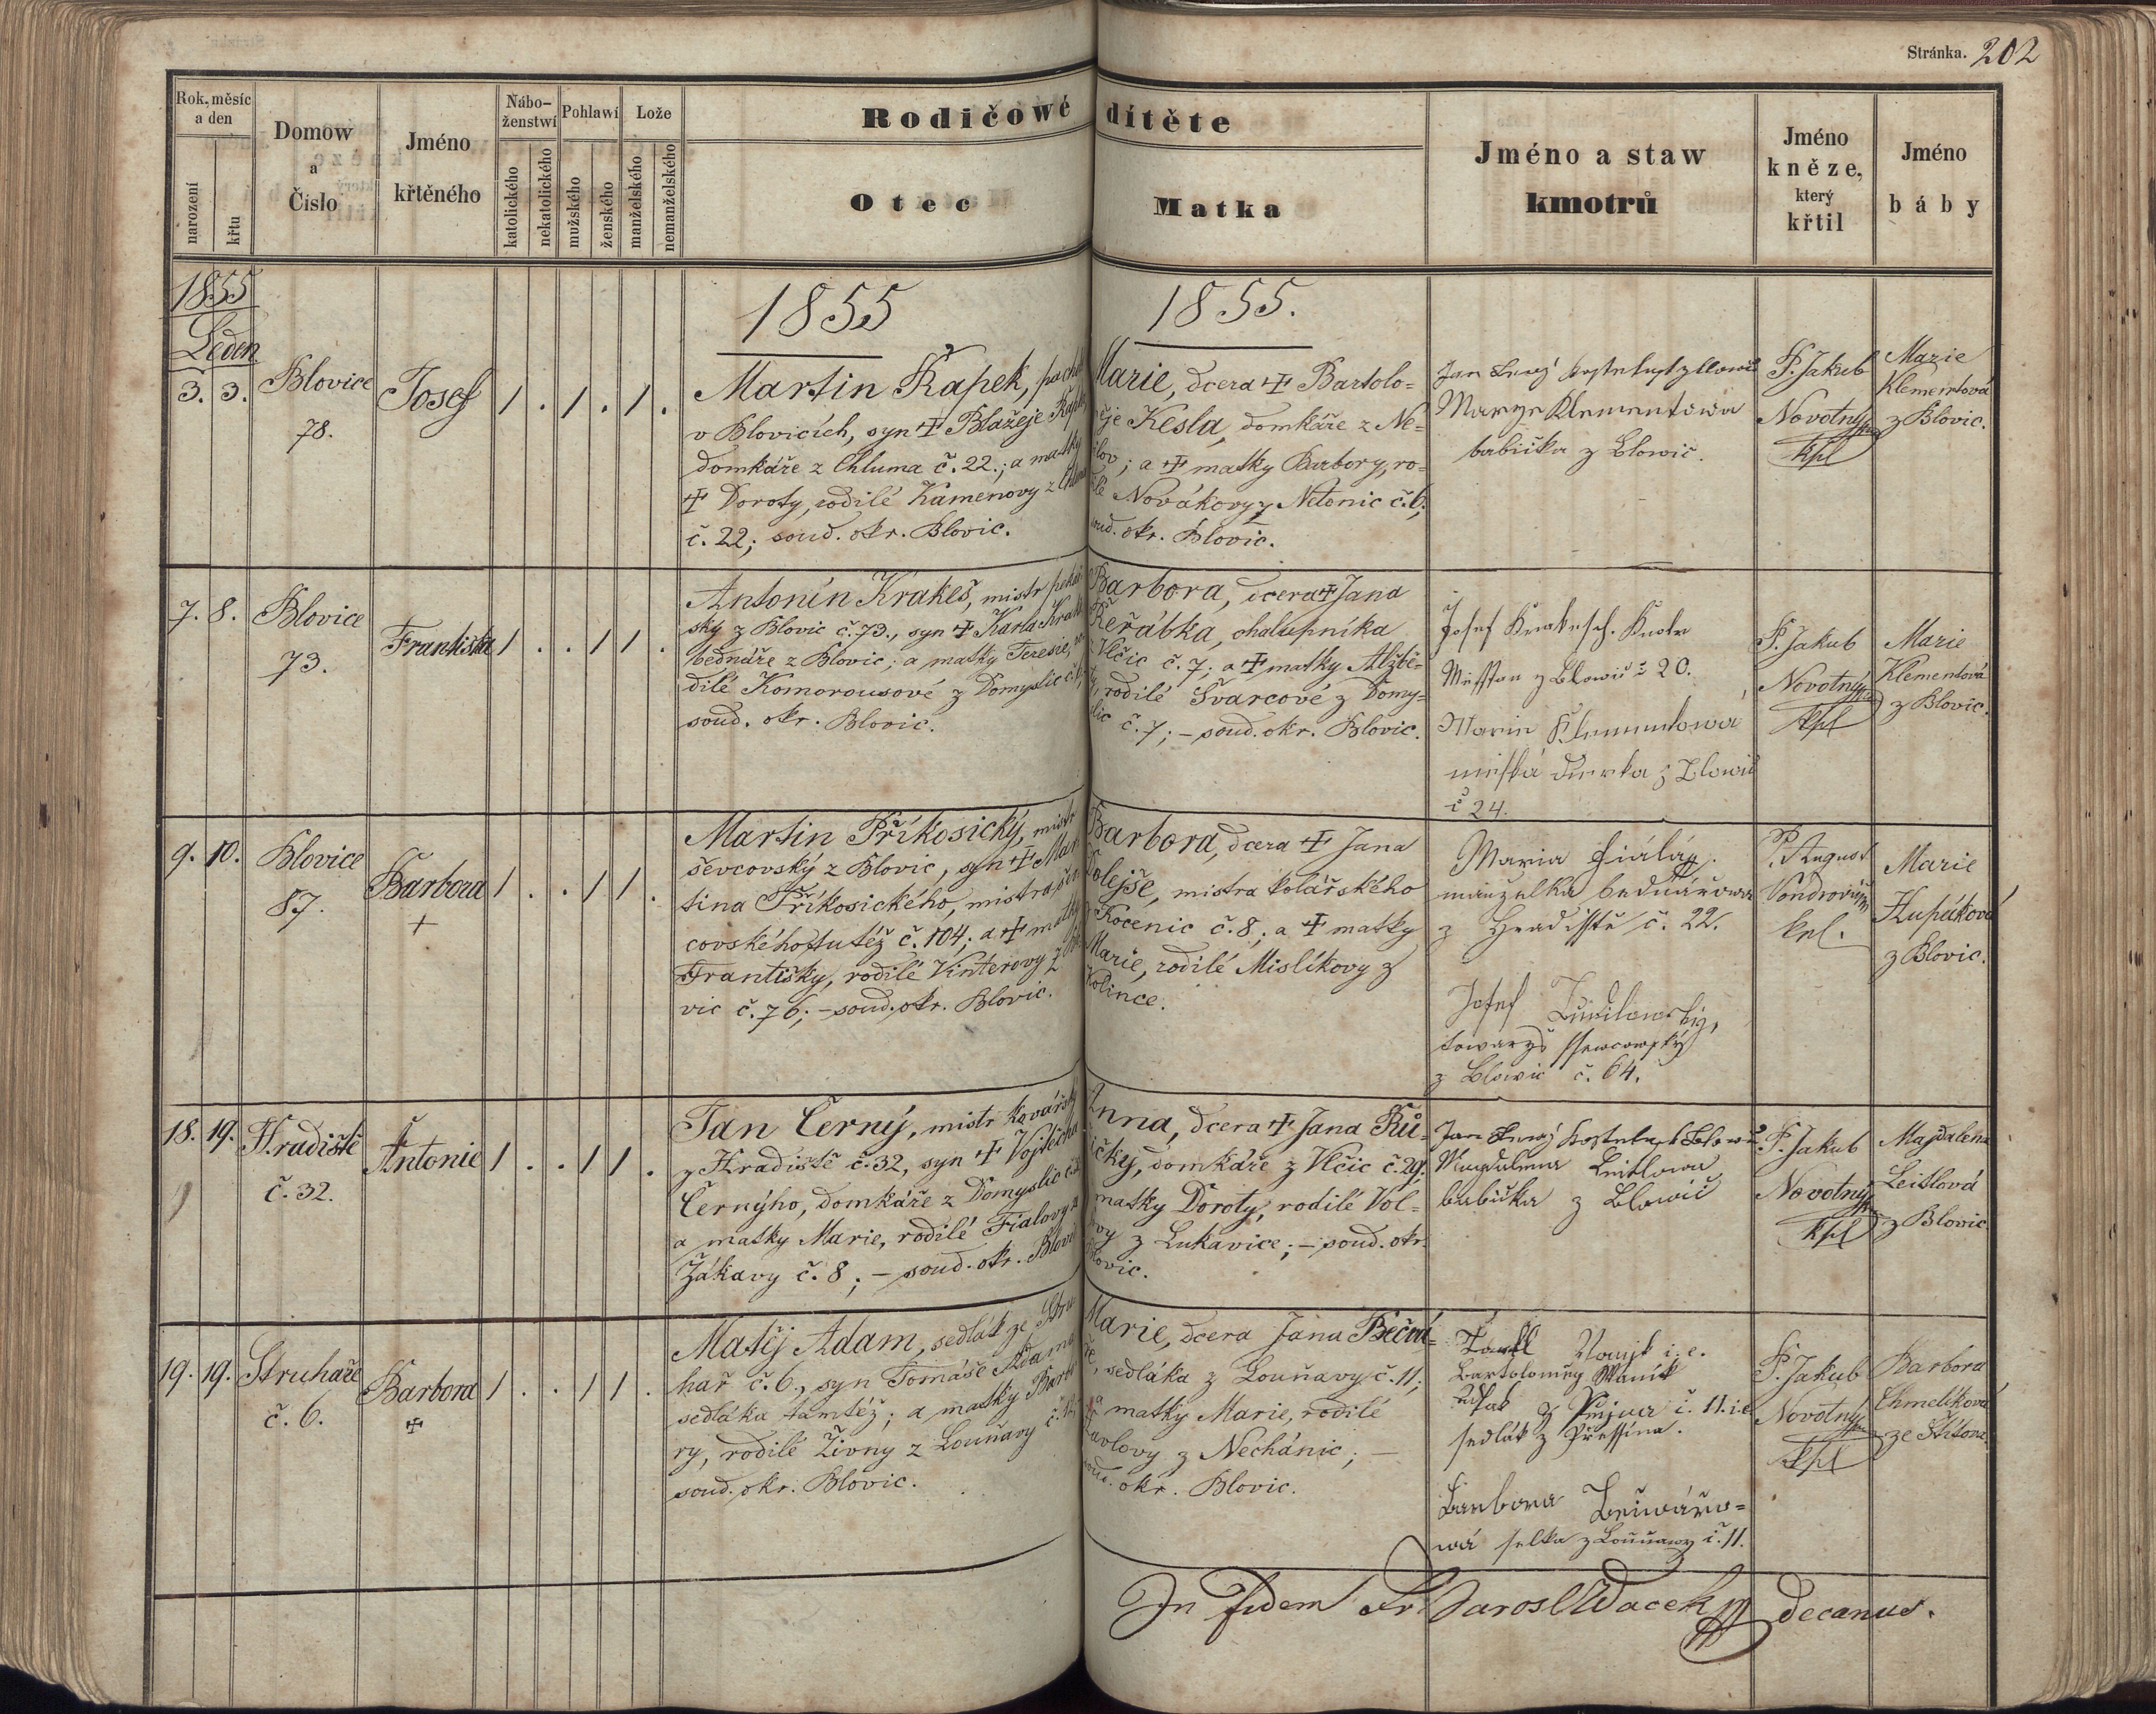 Stránka. 202
Rok, měsíc a den
narození
křtu
Domow a Číslo
Jméno křtěného
Nábo-ženstwí
katolického
nekatolického
Pohlawí
mužského
ženského
Lože
manželského
nemanželského
Rodičowé dítěte
Otec
Matka
Jméno a staw kmotrů
Jméno kněze, který křtil
Jméno báby
1855
Leden
1855
1855.
3. 3.
Blovice
78.
Josef
1 . 1 . 1 .
Martin Řapek,
v Blovicích, syn ☩ Blažeje
domkáře z Chluma č. 22.; a matky
☩ Doroty, rodilé Kamenovy z
č. 22; soud. okr. Blovic.
Marie, dcera ☩ Bartolo=
Kesla, domkáře z Ne=
; a ☩ matky Barbory, ro=
Novákovy z Netonic č. 6;
soud. okr. Blovic.
Jan
Marye Klementowa
babička z Blowic.
P. Jakub
Novotny
kpl
Marie
Klementová
z Blovic.
7. 8.
Blovice
73.
Františka
1 . . 1 1
Antonín Krakeš, mistr pekař
ský z Blovic č. 73., syn ☩ Karla
bednáře z Blovic; a matky Teresie,
dilé Komorousové z Domyslic
soud. okr. Blovic.
Barbora, dcera ☩ Jana
Řeřábka, chalupníka
z Vlčic č. 7; a ☩ matky Alžbě=
ty, rodilé Švarcové z Domy=
slic č. 7; – soud. okr. Blovic.
Josef Krakesch
z Blowic č 20.
Marie Klementowa
z Blowic
č 24.
P. Jakub
Novotný
kpl
Marie
Klementová
z Blovic.
9. 10.
Blovice
87.
Barbora
+
1 . . 1 1 .
Martin Příkosický, mistr
ševcovský z Blovic, syn ☩ Mar
tina Příkosického, mistra šev
covského tutéž č. 104; a ☩ matky
Františky, rodilé Vinterovy z
vic č. 76; – soud. okr. Blovic.
Barbora, dcera ☩ Jana
Dolejše, mistra kolářského
z Kocenic č. 8; a ☩ matky
Marie, rodilé Mislíkovy z
Kolince.
Maria
manzelka bednářowa
z Hradisstě č. 22.
Josef
towaryš ssewcowský
z Blowic č. 64.
P. August
kpl.
Marie
z Blovic.
18. 19.
Hradiště
č. 32.
Antonie
1 . . 1 1 .
Jan Černý, mistr kovářský
z Hradiště č. 32, syn ☩ Vojtěcha
Černýho, domkáře z Domyslic
a matky Marie, rodilé Fialovy z
Žákavy č. 8; – soud. okr. Blovic
Anna, dcera ☩ Jana Rů=
žičky, domkáře z Vlčic č. 29;
matky Doroty, rodilé Vol=
z Lukavice; – soud. okr.
Blovic.
Jan
Magdalena Leitlowa
babička z Blowic
P. Jakub
Novotny
kpl
Majdalena
Leitlová
z Blovic
19. 19.
Struhaře
č. 6.
Barbora
☩
1 . . 1 1 .
Matěj Adam, sedlák ze Stru
hař č. 6., syn Tomáše Adama
sedláka tamtéž; a matky Barbo
ry, rodilé Živny z Louňavy
soud. okr. Blovic.
Marie, dcera Jana Bečvá=
ře, sedláka z Louňavy č. 11;
a matky Marie, rodilé
Pavlovy z Nechánic; –
soud. okr. Blovic.
i. e.
Bartoloměy Waník
č. 11. i.e.
sedlák z Přessína.
Barbora
wá selka z Louňawy č. 11.
P. Jakub
Novotny
kpl
Barbora
Chmelíková
ze Štítova
In fidem Fr. Jarosl Wacek decanus.